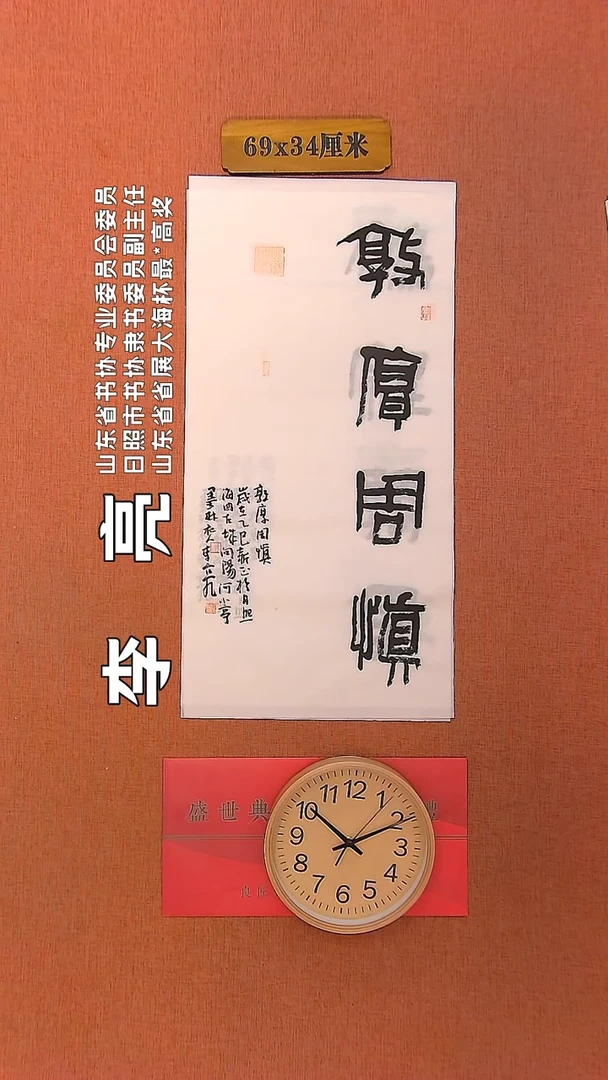 69x34厘米
山东省书协专业委员会委员
日照市书协隶书委员副主任
山东省省展大海杯最*高奖
李亮
敦厚周慎
敦厚周慎
歲在乙巳新正於日照
盛世典
12
1
2
3
4
5
6
7
8
9
10
11